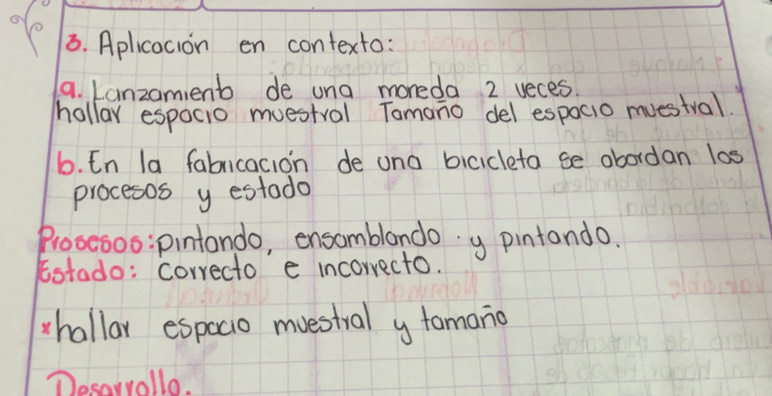 3. Aplicación en contexto:
a. Lanzamiento de una moneda 2 veces.
hallar espacio muestral Tamaño del espacio muestral.
b. En la fabricación de una bicicleta se abordan los
procesos y estado
Procesos: pintando, ensamblando y pintando.
Estado: correcto e incorrecto.
*hallar espacio muestral y tamaño
Desarrollo.